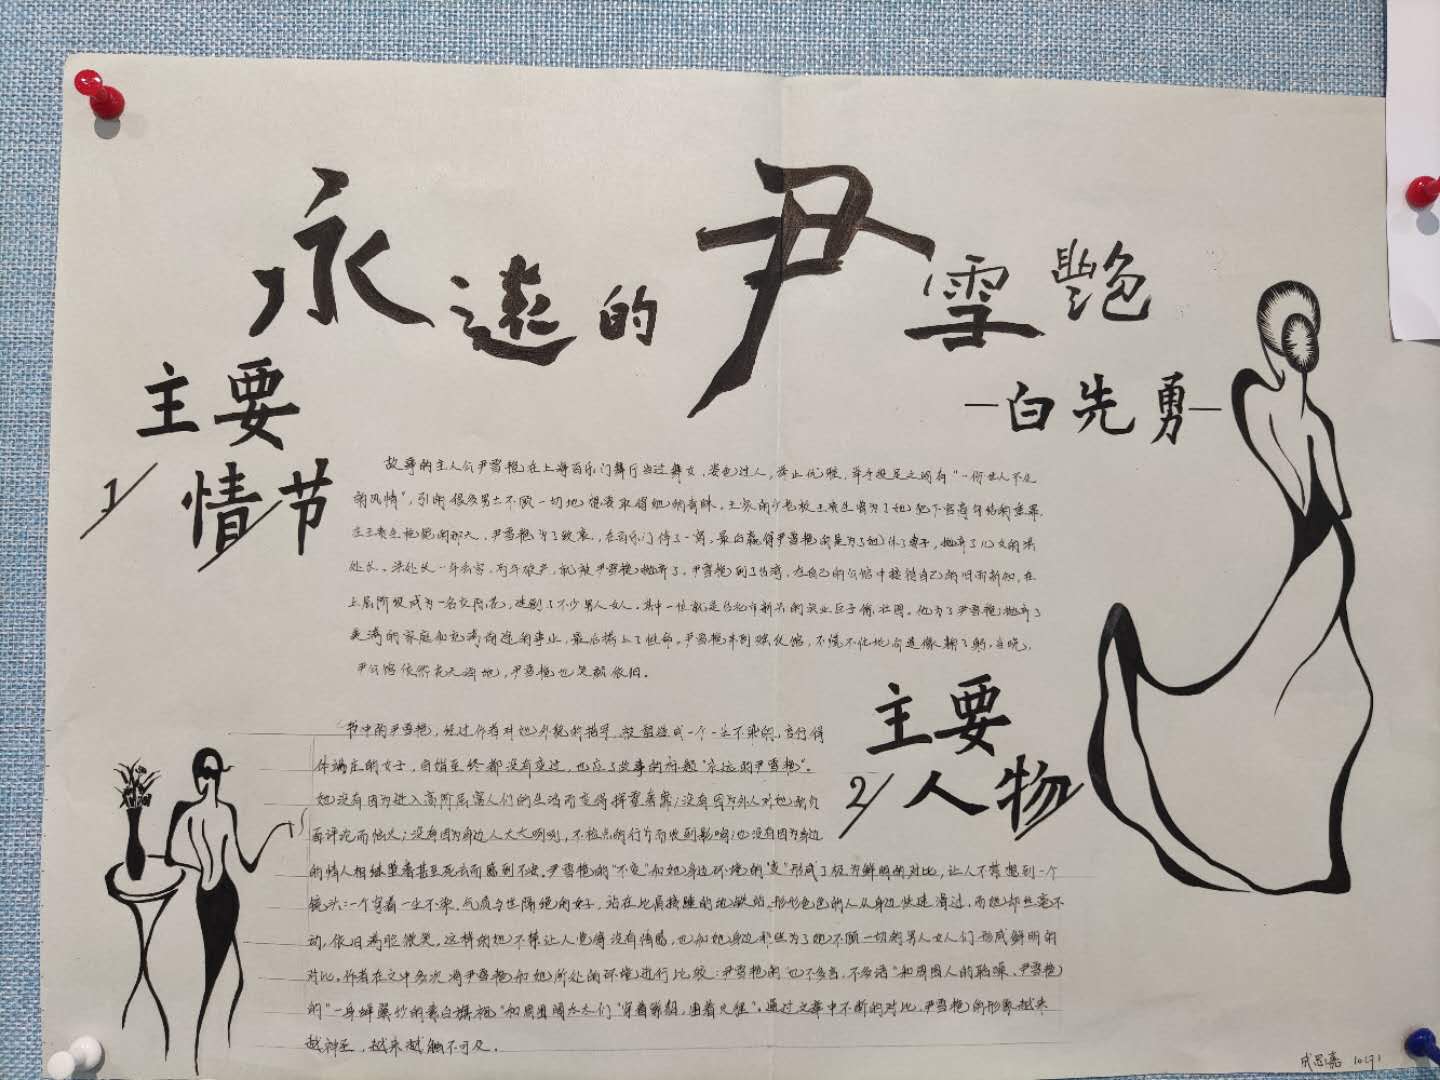 永遠的尹雪艷
—白先勇—
主要
1/情节
故事的主人公尹雪艳在上海百乐门舞厅当过舞女，姿色过人，举止优雅，举手投足之间有“一份世人不及
的风情”，引得很多男士不顾一切地想要取得她的青睐。王家的少老板王贵生曾为了她犯下官商勾结的重罪，
在王贵生枪毙的那天，尹雪艳为了致哀，在百乐门停了一宵，最后赢得尹雪艳的是为了她休了妻子，抛弃了儿女的洪
处长。洪处长一年丢官，两年破产，就被尹雪艳抛弃了。尹雪艳到了台湾，在自己的公馆中接待自己的旧雨新知，在
上层阶级成为一名交际花，迷倒了不少男人女人。其中一位就是台北市新兴的实业巨子徐壮图。他为了尹雪艳抛弃了
美满的家庭和充满前途的事业，最后搭上了性命。尹雪艳来到殡仪馆，不慌不忙地向遗像鞠了躬，当晚，
尹公馆依然花天酒地，尹雪艳也笑靥依旧。
主要
2/人物
书中的尹雪艳，经过作者对她外貌的描写，被塑造成一个一尘不染的，言行得
体端庄的女子，自始至终都没有变过，也应了故事的标题“永远的尹雪艳”。
她没有因为进入高阶层富人们的生活而变得挥霍奢靡；没有因为外人对她的负
面评论而恼火；没有因为身边人大大咧咧，不检点的行为而收到影响；也没有因为身边
的情人相继堕落甚至死去而感到不安。尹雪艳的“不变”和她身边环境的“变”形成了极为鲜明的对比，让人不禁想到一个
镜头：一个穿着一尘不染，气质与世隔绝的女子，站在比肩接踵的地铁站，形形色色的人从身边快速滑过，而她却丝毫不
动，依旧满脸微笑。这样的她不禁让人觉得没有情感，也和她身边那些为了她不顾一切的男人女人们形成鲜明的
对比。作者在文中多次将尹雪艳和她所处的环境进行比较：尹雪艳的“也不多言，不多语”和周围人的聒噪、尹雪艳
的“一身蝉翼纱的素白旗袍”和周围阔太太们“穿着
通过文章中不断的对比，尹雪艳的形象越来
越神圣，越来越触不可及。